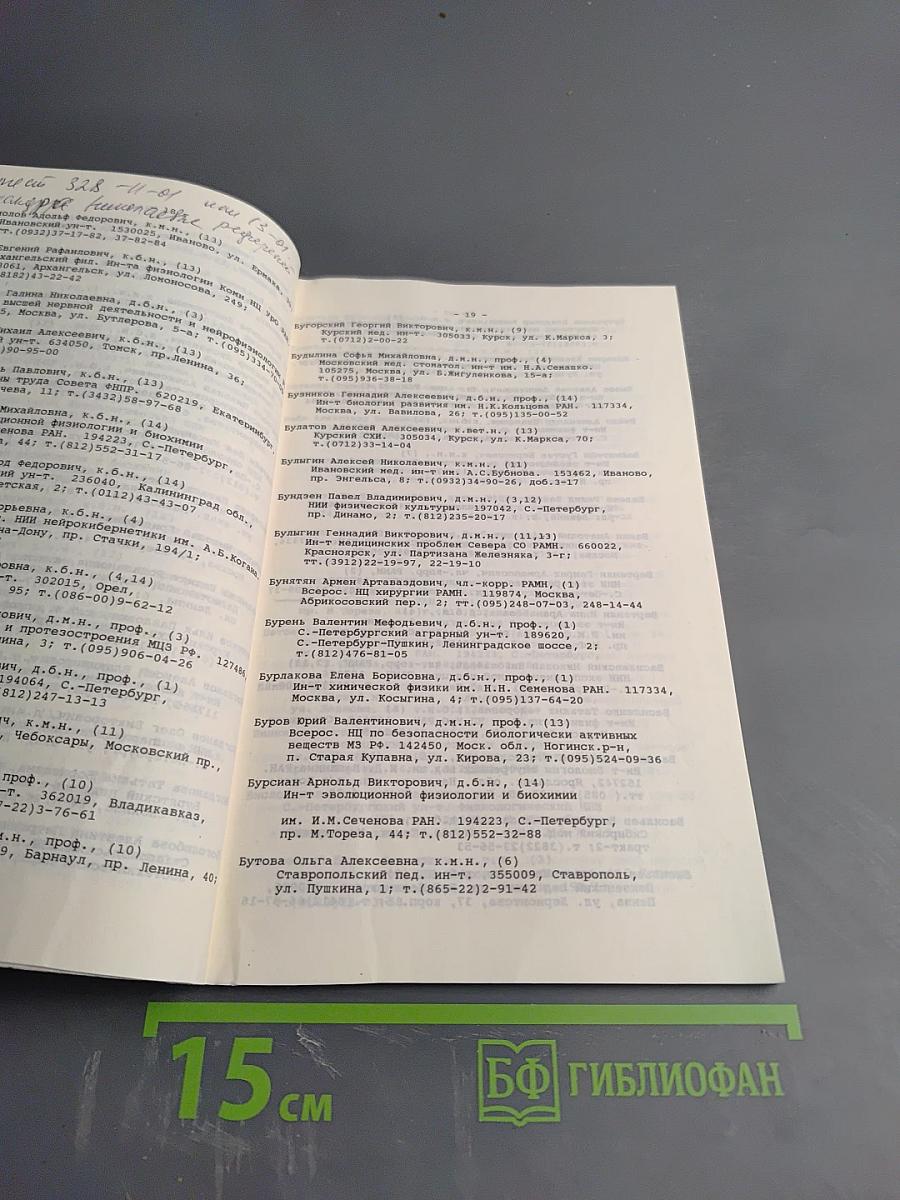 328-11-01 или 13-01
Адольф Федорович, к.м.н., (13)
Ивановский ун-т. 1530025, Иваново, ул. Ермака,
т.(0932)37-17-82, 37-82-84
Евгений Рафаилович, к.б.н., (13)
Архангельский фил. Ин-та физиологии Коми НЦ УРО
3061, Архангельск, ул. Ломоносова, 249;
8182)43-22-42
Галина Николаевна, д.б.н., (3)
высшей нервной деятельности и нейрофизиологии
5, Москва, ул. Бутлерова, 5-а; т.(095)334-
Михаил Алексеевич, к.б.н., (13)
й ун-т. 634050, Томск, пр.Ленина, 36;
)90-95-00
ь Павлович, к.б.н., (13)
ны труда Совета ФНПР. 620219, Екатеринбург,
чева, 11; т.(3432)58-97-68
Михайловна, к.б.н., (14)
ционной физиологии и биохимии
ченова РАН. 194223, С.-Петербург,
а, 44; т.(812)552-31-17
рд Федорович, к.б.н., (14)
ский ун-т. 236040, Калининград обл.,
етская, 2; т.(0112)43-43-07
орьевна, к.б.н., (4)
НИИ нейрокибернетики им. А.Б.Когана
на-Дону, пр. Стачки, 194/1;
овна, к.б.н., (4,14)
-т. 302015, Орел,
95; т.(086-00)9-62-12
ович, д.м.н., проф., (3)
и протезостроения МЦЗ РФ. 127486,
ина, 3; т.(095)906-04-26
вич, д.б.н., проф., (1)
194064, С.-Петербург,
(812)247-13-13
ич, к.м.н., (11)
, Чебоксары, Московский пр.,
проф., (10)
-т. 362019, Владикавказ,
7-22)3-76-61
м.н., проф., (10)
9, Барнаул, пр. Ленина, 40;
- 19 -
Бугорский Георгий Викторович, к.м.н., (9)
Курский мед. ин-т. 305033, Курск, ул. К.Маркса, 3;
т.(0712)2-00-22
Будылина Софья Михайловна, д.м.н., проф., (4)
Московский мед. стоматол. ин-т им. Н.А.Семашко.
105275, Москва, ул. Б.Жигуленкова, 15-а;
т.(095)936-38-18
Бузников Геннадий Алексеевич, д.б.н., проф., (14)
Ин-т биологии развития им. Н.К.Кольцова РАН. 117334,
Москва, ул. Вавилова, 26; т.(095)135-00-52
Булатов Алексей Алексеевич, к.вет.н., (13)
Курский СХИ. 305034, Курск, ул. К.Маркса, 70;
т.(0712)33-14-04
Булыгин Алексей Николаевич, к.м.н., (11)
Ивановский мед. ин-т им. А.С.Бубнова. 153462, Иваново,
пр. Энгельса, 8; т.(0932)34-90-26, доб.3-17
Бундзен Павел Владимирович, д.м.н., (3,12)
НИИ физической культуры. 197042, С.-Петербург,
пр. Динамо, 2; т.(812)235-20-17
Булыгин Геннадий Викторович, д.м.н., (11,13)
Ин-т медицинских проблем Севера СО РАМН. 660022,
Красноярск, ул. Партизана Железняка, 3-г;
тт.(3912)22-19-97, 22-19-10
Бунятян Армен Артаваздович, чл.-корр. РАМН, (1)
Всерос. НЦ хирургии РАМН. 119874, Москва,
Абрикосовский пер., 2; тт.(095)248-07-03, 248-14-44
Бурень Валентин Мефодьевич, д.б.н., проф., (1)
С.-Петербургский аграрный ун-т. 189620,
С.-Петербург-Пушкин, Ленинградское шоссе, 2;
т.(812)476-81-05
Бурлакова Елена Борисовна, д.б.н., проф., (1)
Ин-т химической физики им. Н.Н. Семенова РАН. 117334,
Москва, ул. Косыгина, 4; т.(095)137-64-20
Буров Юрий Валентинович, д.м.н., проф., (13)
Всерос. НЦ по безопасности биологически активных
веществ МЗ РФ. 142450, Моск. обл., Ногинск.р-н,
п. Старая Купавна, ул. Кирова, 23; т.(095)524-09-36
Бурсиан Арнольд Викторович, д.б.н., (14)
Ин-т эволюционной физиологии и биохимии
им. И.М.Сеченова РАН. 194223, С.-Петербург,
пр. М.Тореза, 44; т.(812)552-32-88
Бутова Ольга Алексеевна, к.м.н., (6)
Ставропольский пед. ин-т. 355009, Ставрополь,
ул. Пушкина, 1; т.(865-22)2-91-42
15 см
БФ ГИБЛИОФАН